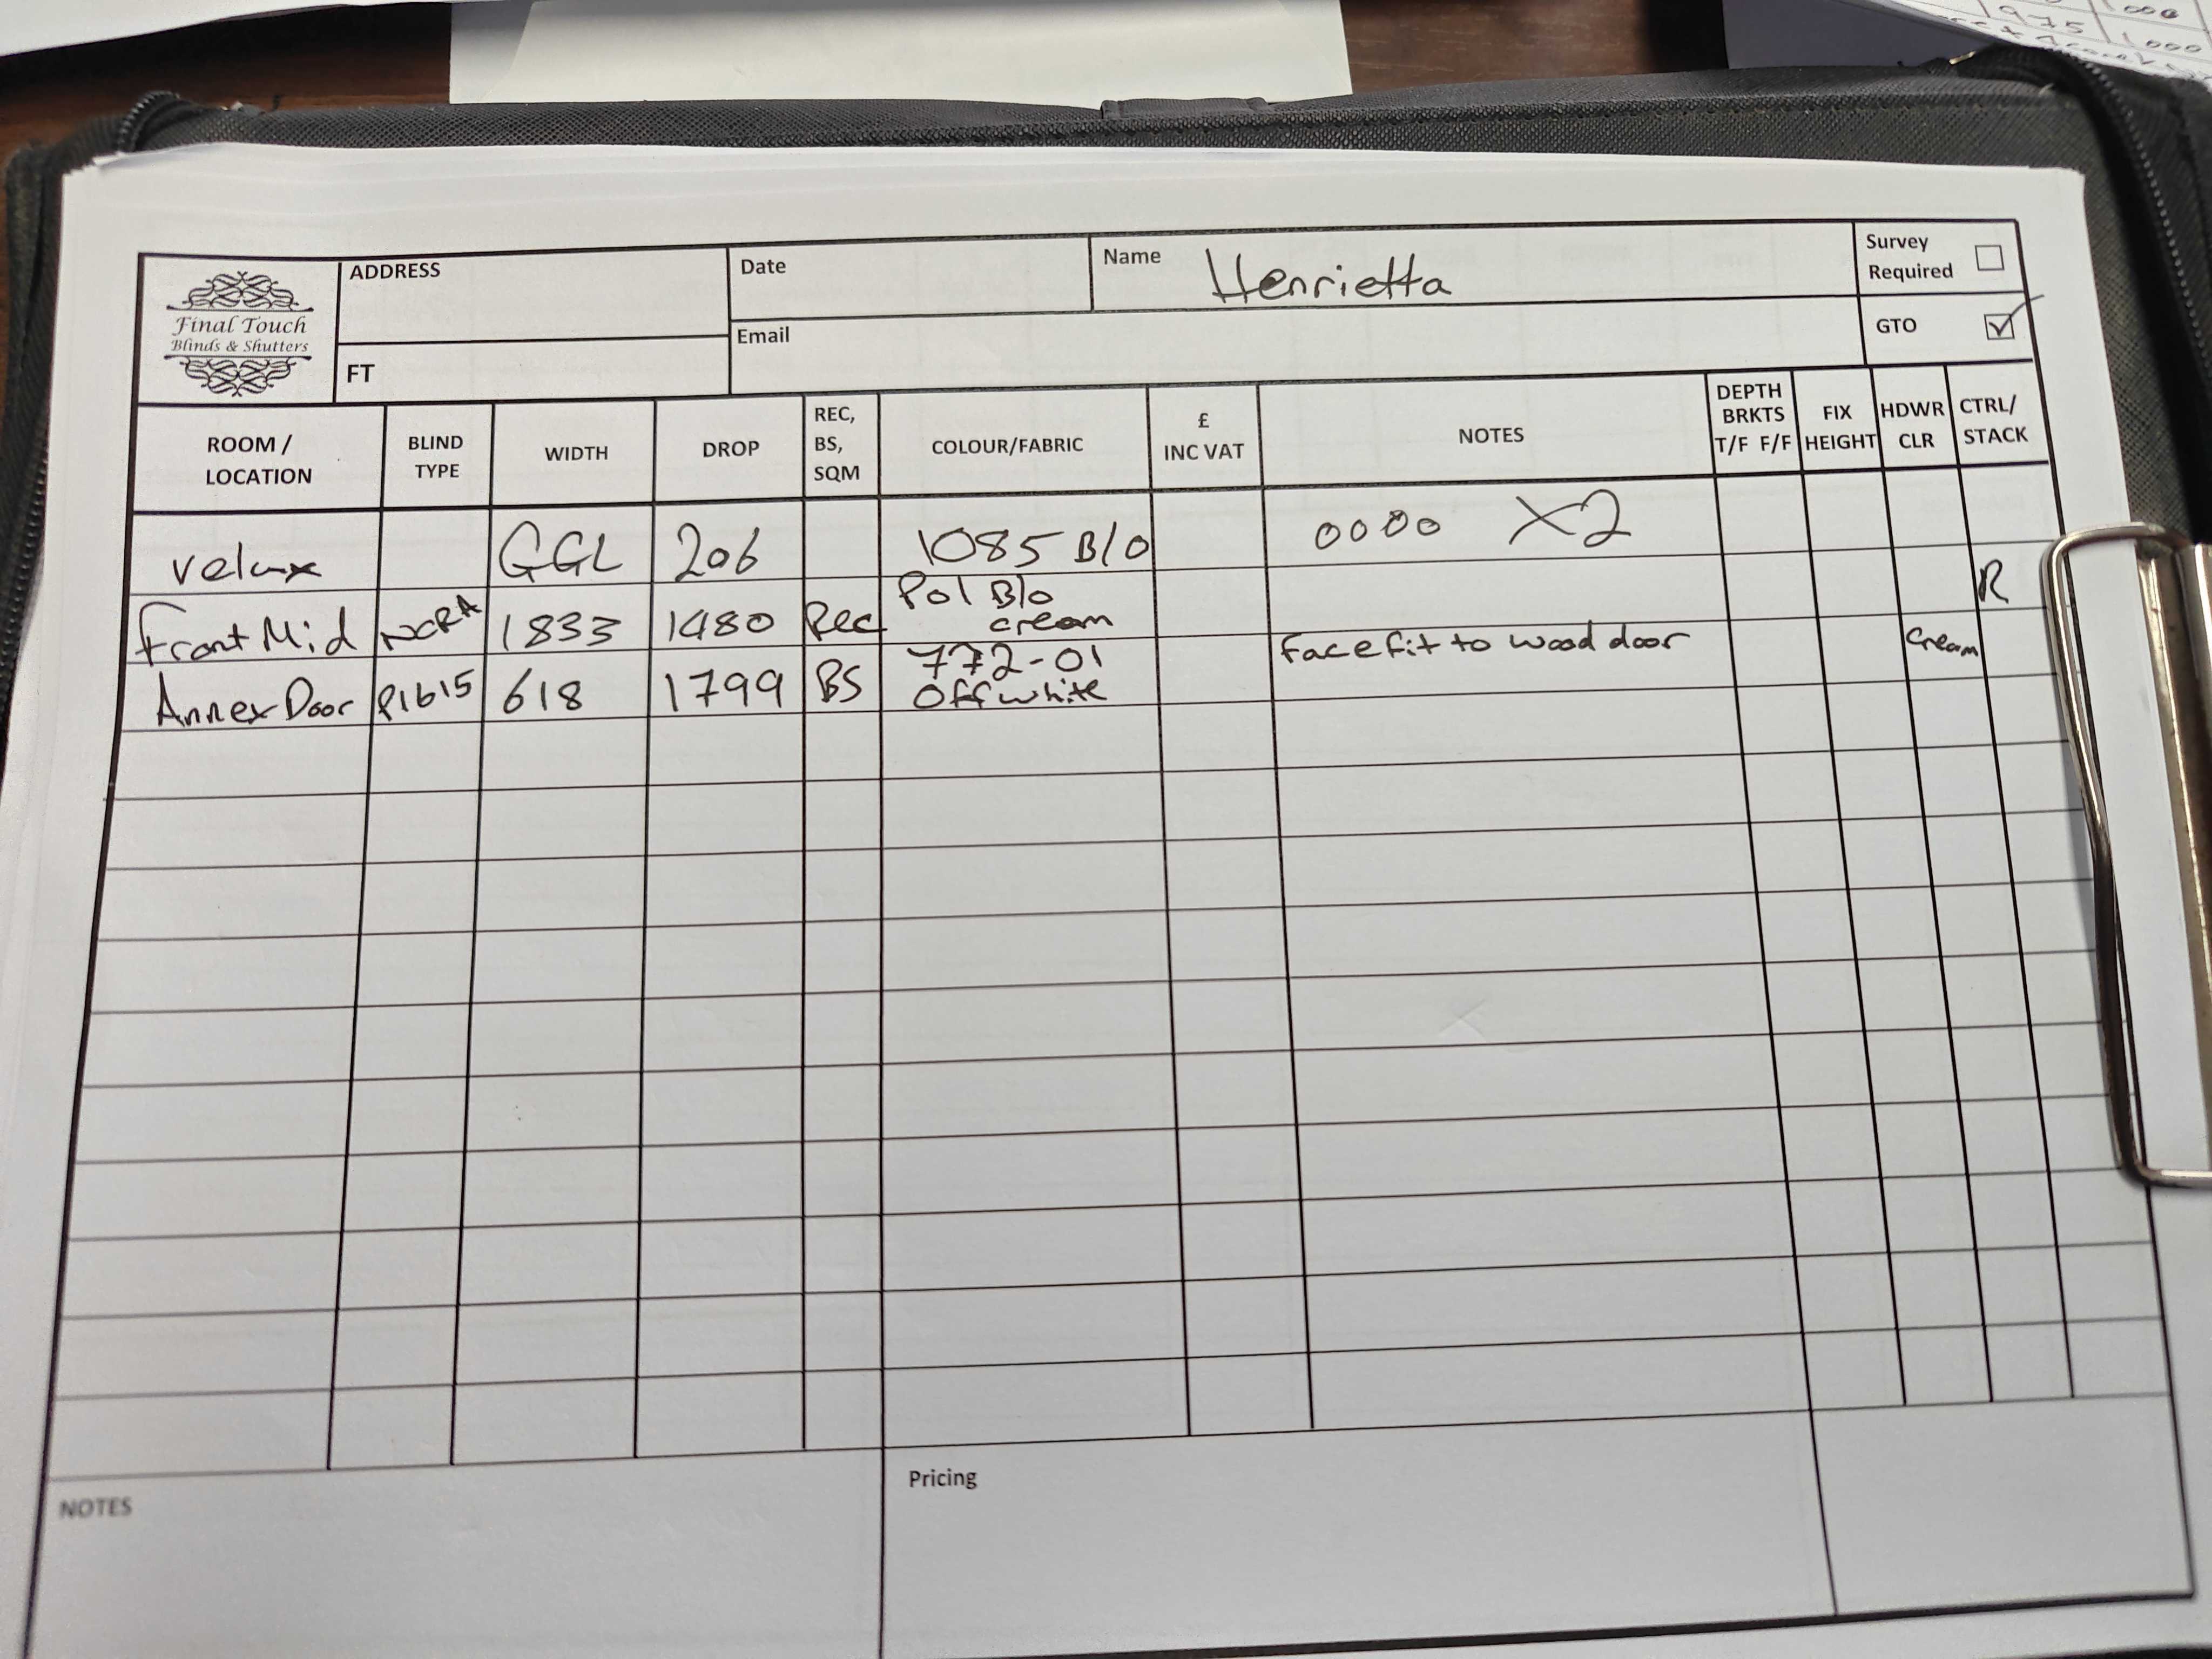 006
975 1000
Final Touch
Blinds & Shutters
ADDRESS
FT
Date
Name Henrietta
Email
Survey Required
GTO
ROOM / LOCATION BLIND TYPE WIDTH DROP REC, BS, SQM COLOUR/FABRIC £ INC VAT NOTES DEPTH BRKTS T/F F/F FIX HEIGHT HDWR CLR CTRL/ STACK
Velux GGL 206 1085 B/O 0000 X2
Front Mid NCRA 1833 1480 Rec Pol B/o cream R
Annex Door P1615 618 1799 BS 772-01 Offwhite Face fit to wood door Cream
NOTES
Pricing